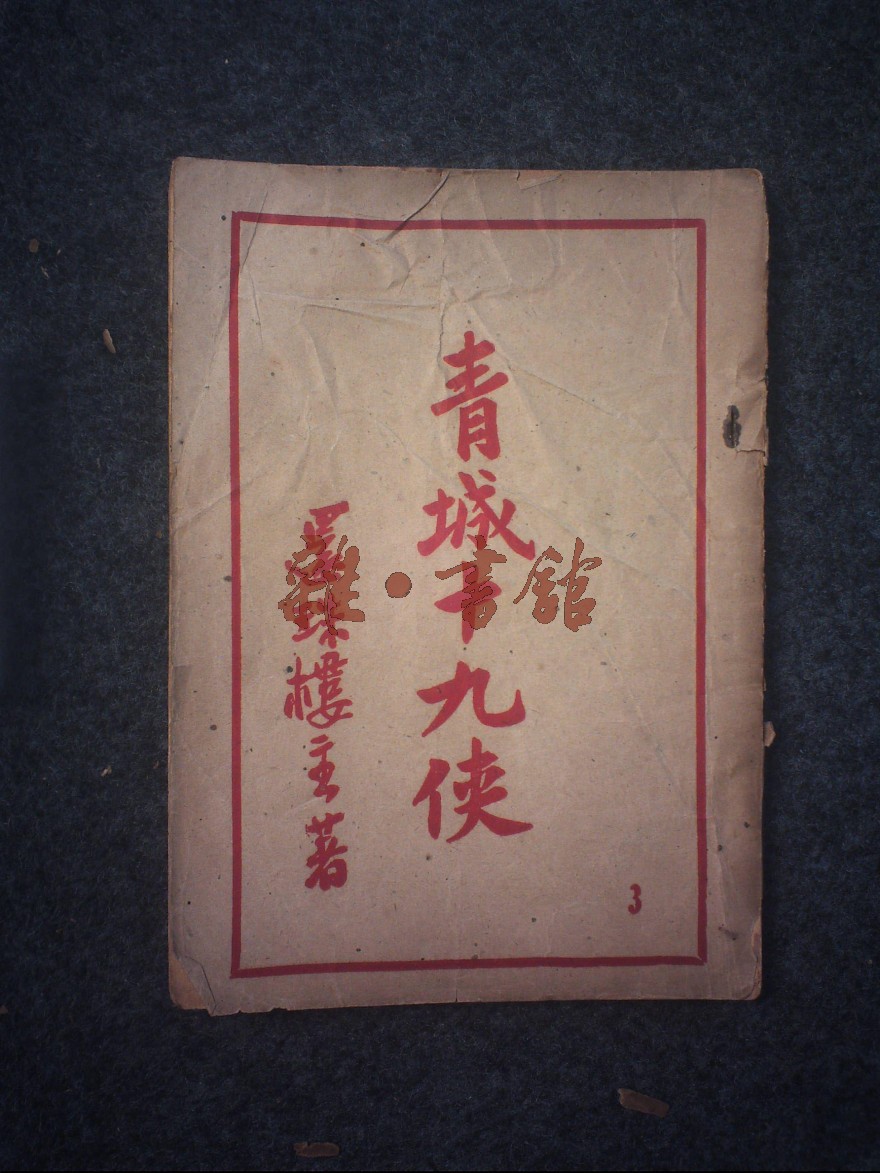 青城十九侠
還珠樓主著
3
雜·書館